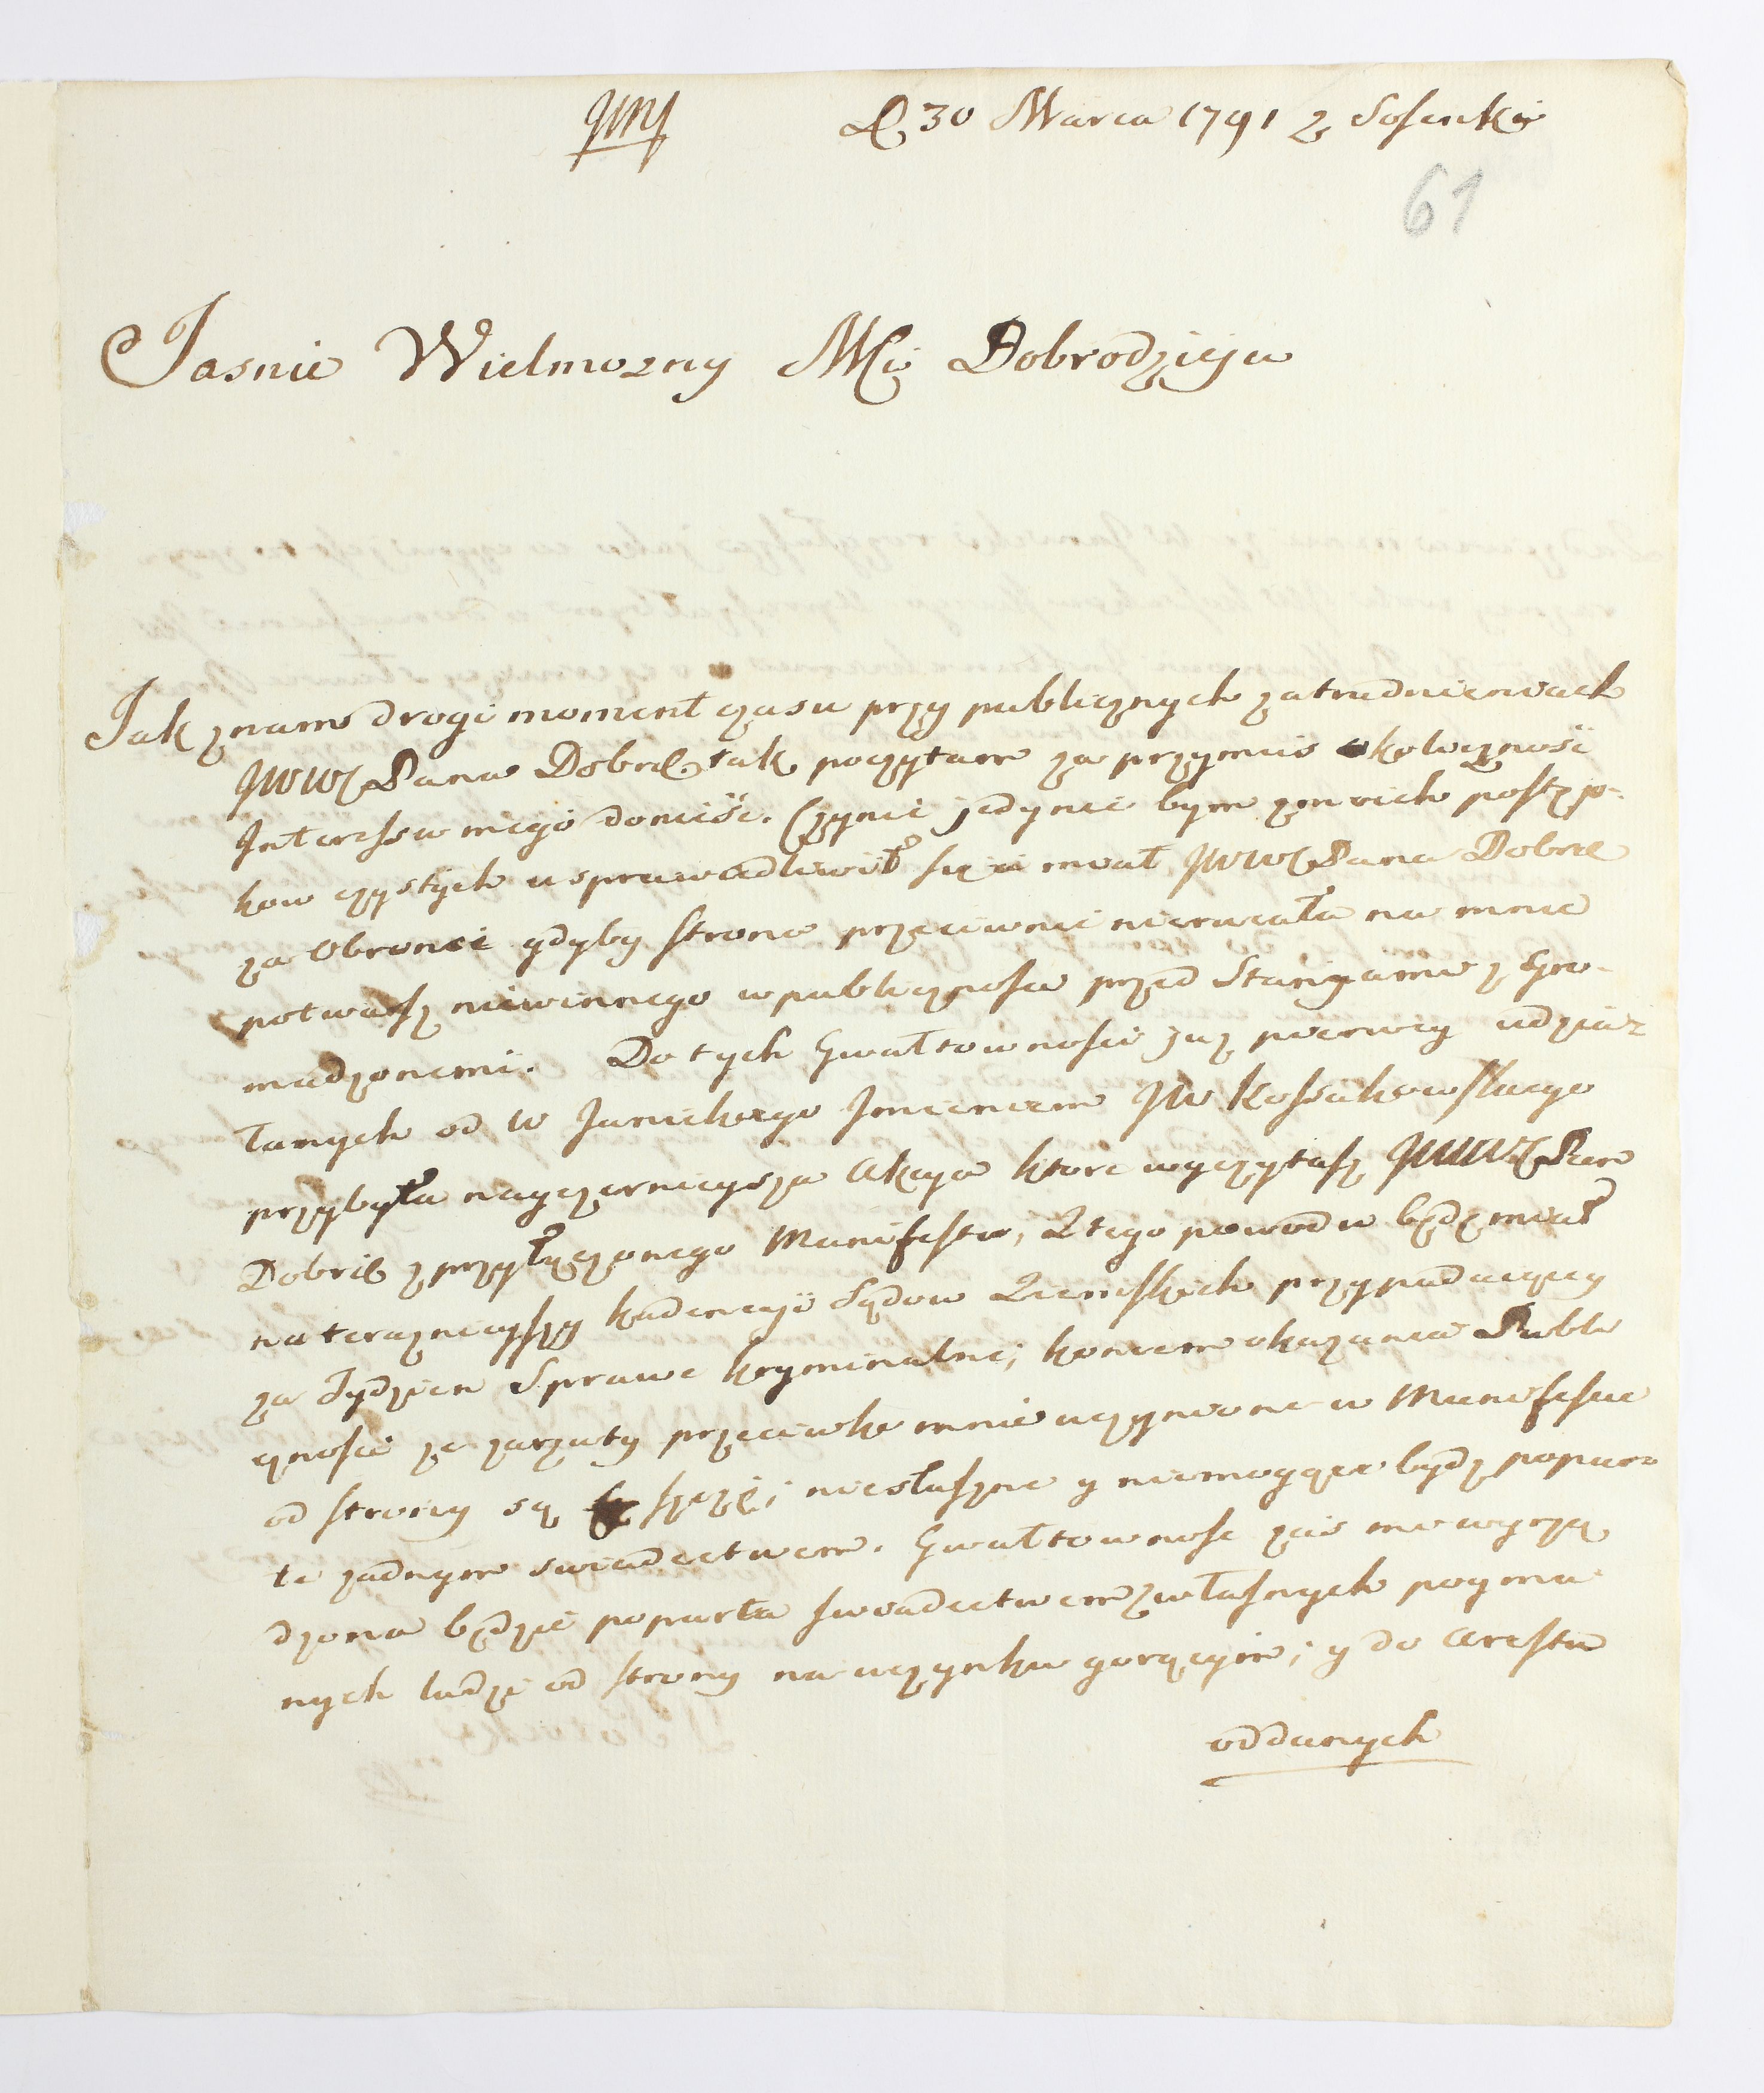 D 30 Marca 1791 z Sosenki
61
Jasnie Wielmozny Mci Dobrodzieju
Jak znam drogi moment czasu przy publicznych zatrudnieniach
JWW Pana Dobrd. tak poczytam za przymus okolicznosci
Interessu mego doniesc. Czynie jedynie bym z moich postęp-
kow czystych usprawiedliwił się i miał JWW Pana Dobrd
za Obronce gdyby strona przeciwna nierucała na mnie
potwarz niewinnego w publicznosci przed Stanami zgro-
madzonemi. Do tych Gwałtownosci juz pierwey udział
łanych od W Janickiego Imieniem JW Kossakowskiego
przybyła nayczernieysza Akcya ktore wyczytasz JWW Pan
Dobrd z przyłączonego Manifestu, z tego powodu będę miał
na teraznieyszy kadencyi Sądow Ziemskich przypadaiącey
za Tydzien Sprawe kryminalne; koncem okazania Publi
cznosci ze zarzuty przeciwko mnie uczynione w Manifescie
od strony są niesłuszne y niemogące bydz popar-
te zadnym swiadectwem. Gwałtownosc zas mi wyrzą
dzona będzie poparta swiadectwem własnych poyma
nych ludzi od strony na uczynku gorącym; y do Arestu
oddanych